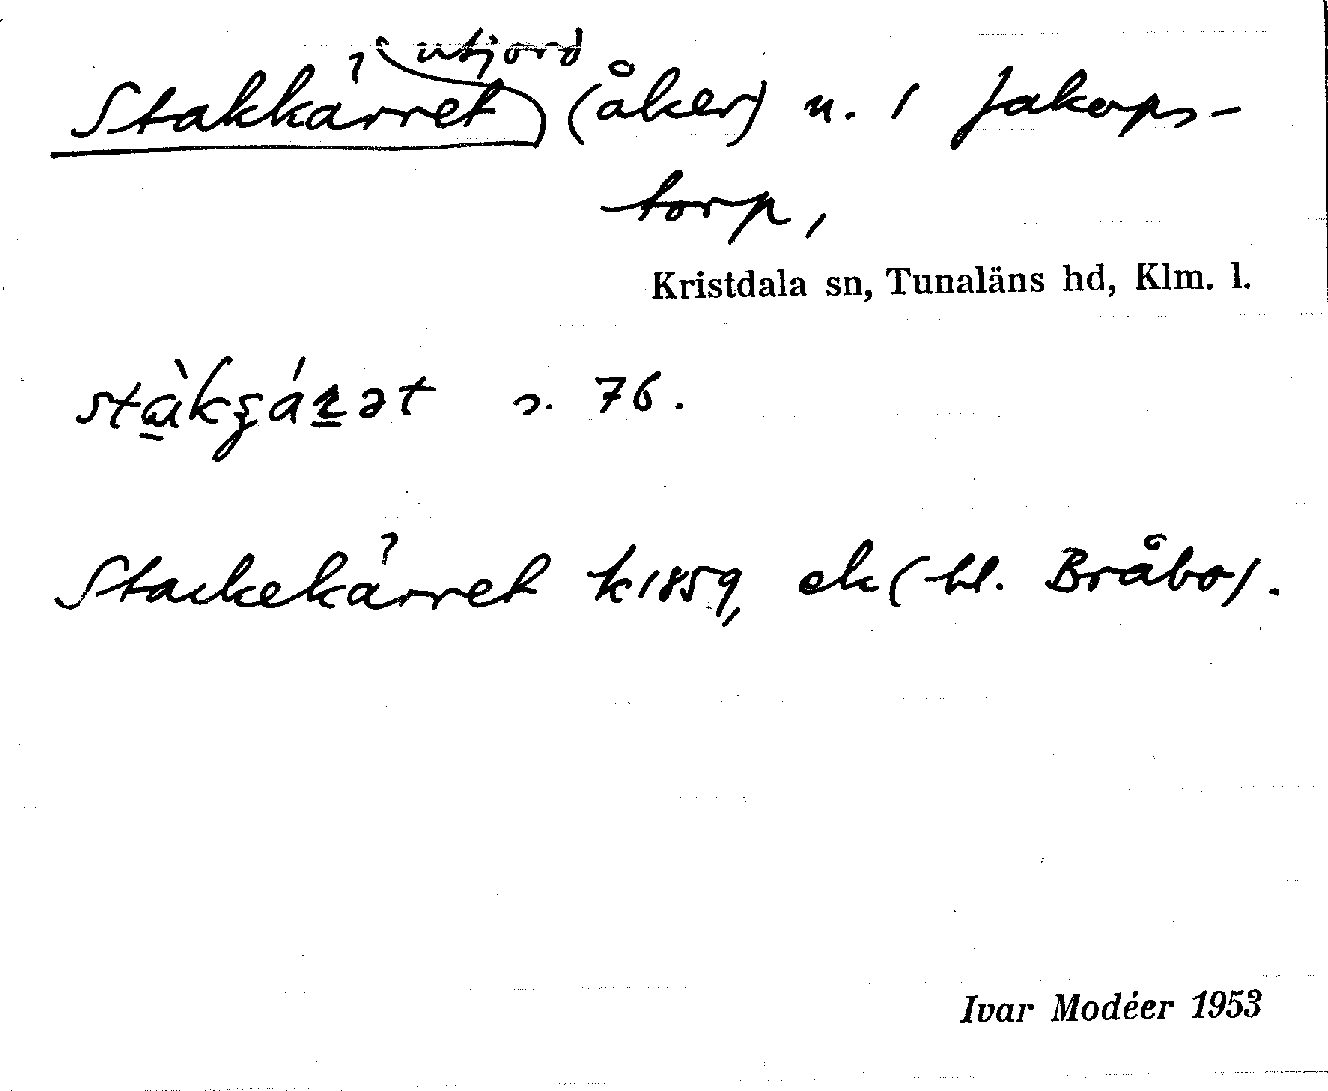 utjord
Stakkärret (åker) n. 1 Jakops-
torp,
Kristdala sn, Tunaläns hd, Klm. l.
s. 76.
Stackekärret k 1859, ek (bl. Bråbo).
Ivar Modéer 1953